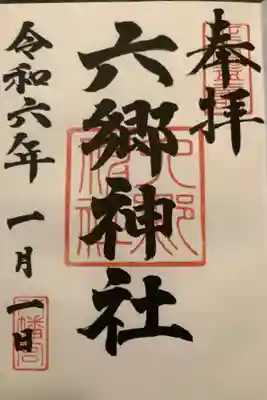 奉拝
六郷神社
令和六年一月一日